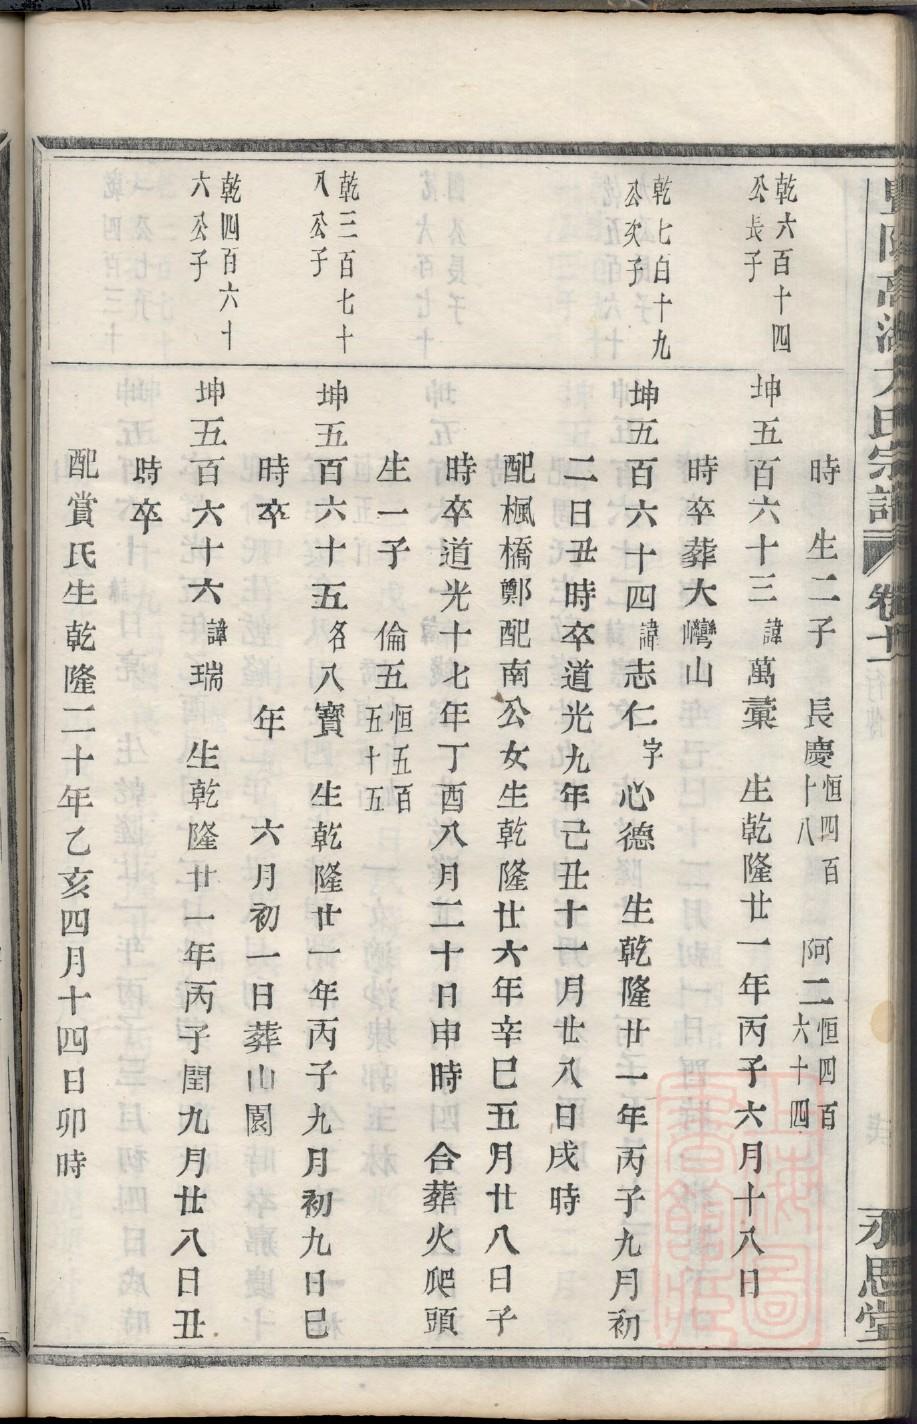 宗譜 卷十一
永思堂
時 生二子 長慶恒四百十八 阿二恒四百六十四
乾六百十四公長子
坤五百六十三諱萬彙 生乾隆廿一年丙子六月十八日
時卒葬大灣山
乾七百十九公次子
坤五百六十四諱志仁字心德 生乾隆廿一年丙子九月初
二日丑時卒道光九年己丑十一月廿八日戌時
配楓橋鄭配南公女生乾隆廿六年辛巳五月廿八日子
時卒道光十七年丁酉八月二十日申時 合葬火爬頭
生一子 倫五恒五百五十五
乾三百七十八公子
坤五百六十五名八寶 生乾隆廿一年丙子九月初九日巳
時卒 年 六月初一日葬山園
乾四百六十六公子
坤五百六十六諱瑞 生乾隆廿一年丙子閏九月廿八日丑
時卒
配賞氏生乾隆二十年乙亥四月十四日卯時